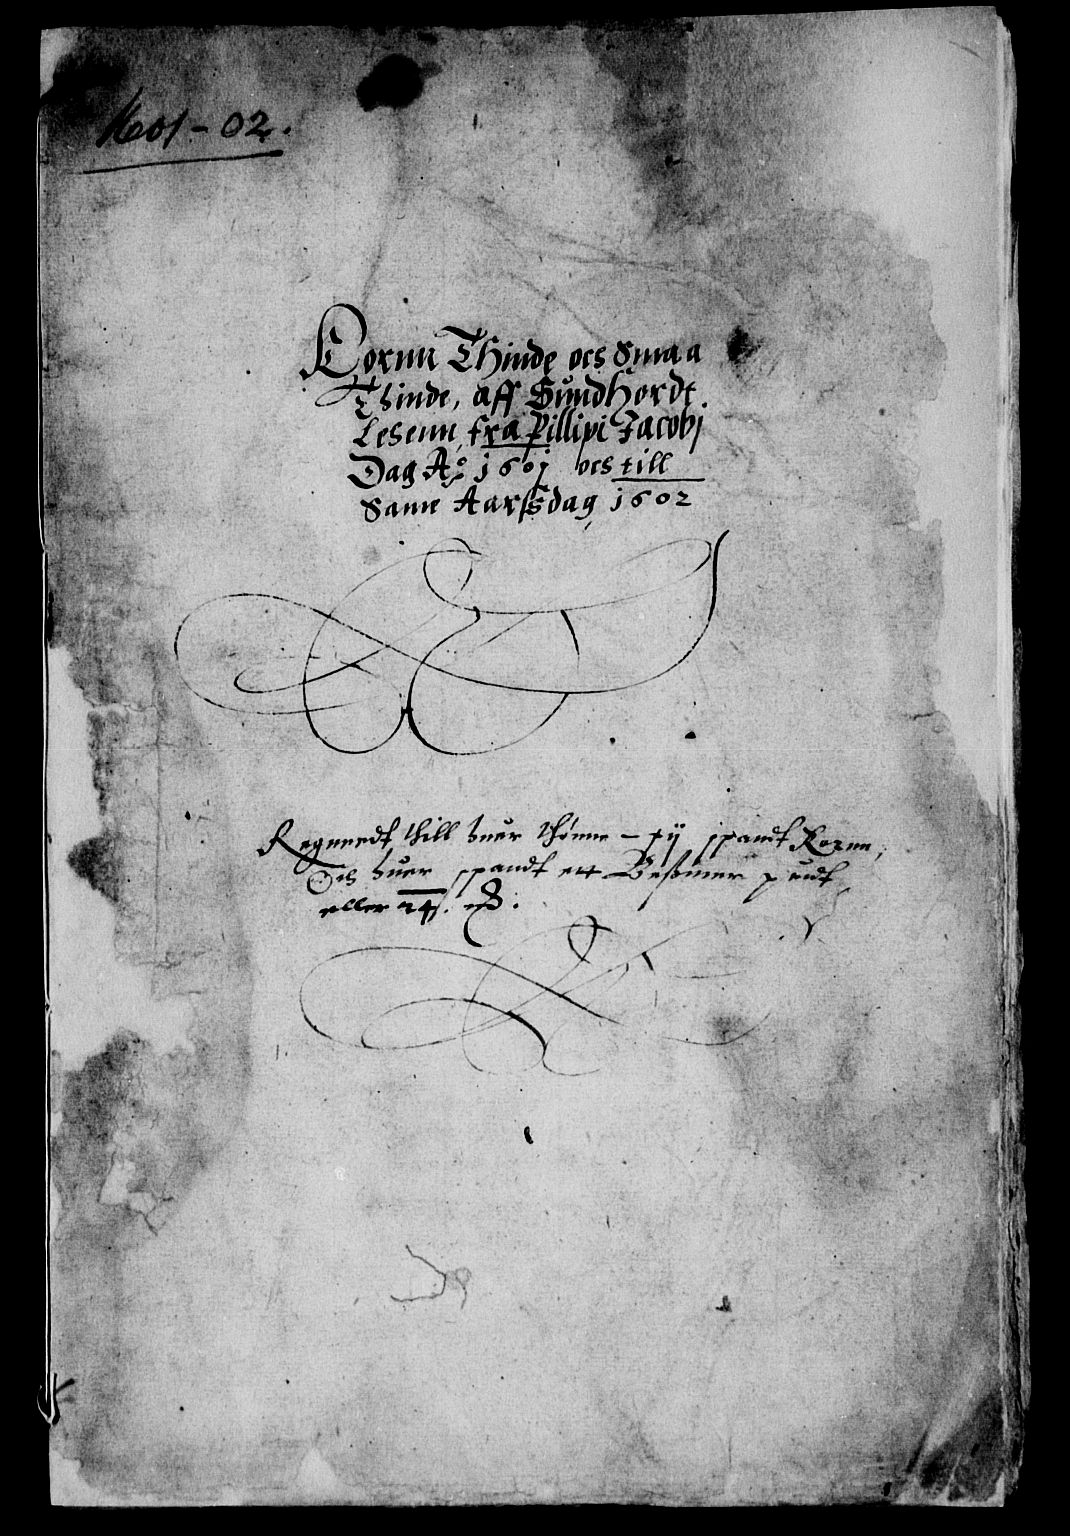 1601-02.
Kornn Thinde ocs Smaa
Thinde, aff Sundhordt
Lehenn, fra Pillipi Jacobj
Dag Ao 1601 ocs till
Samme Aarsßdag 1602
Regneedt thill huer thønne – vij spandt Kornn,
Och huer spandt ett Beßmer pundt
eller 24